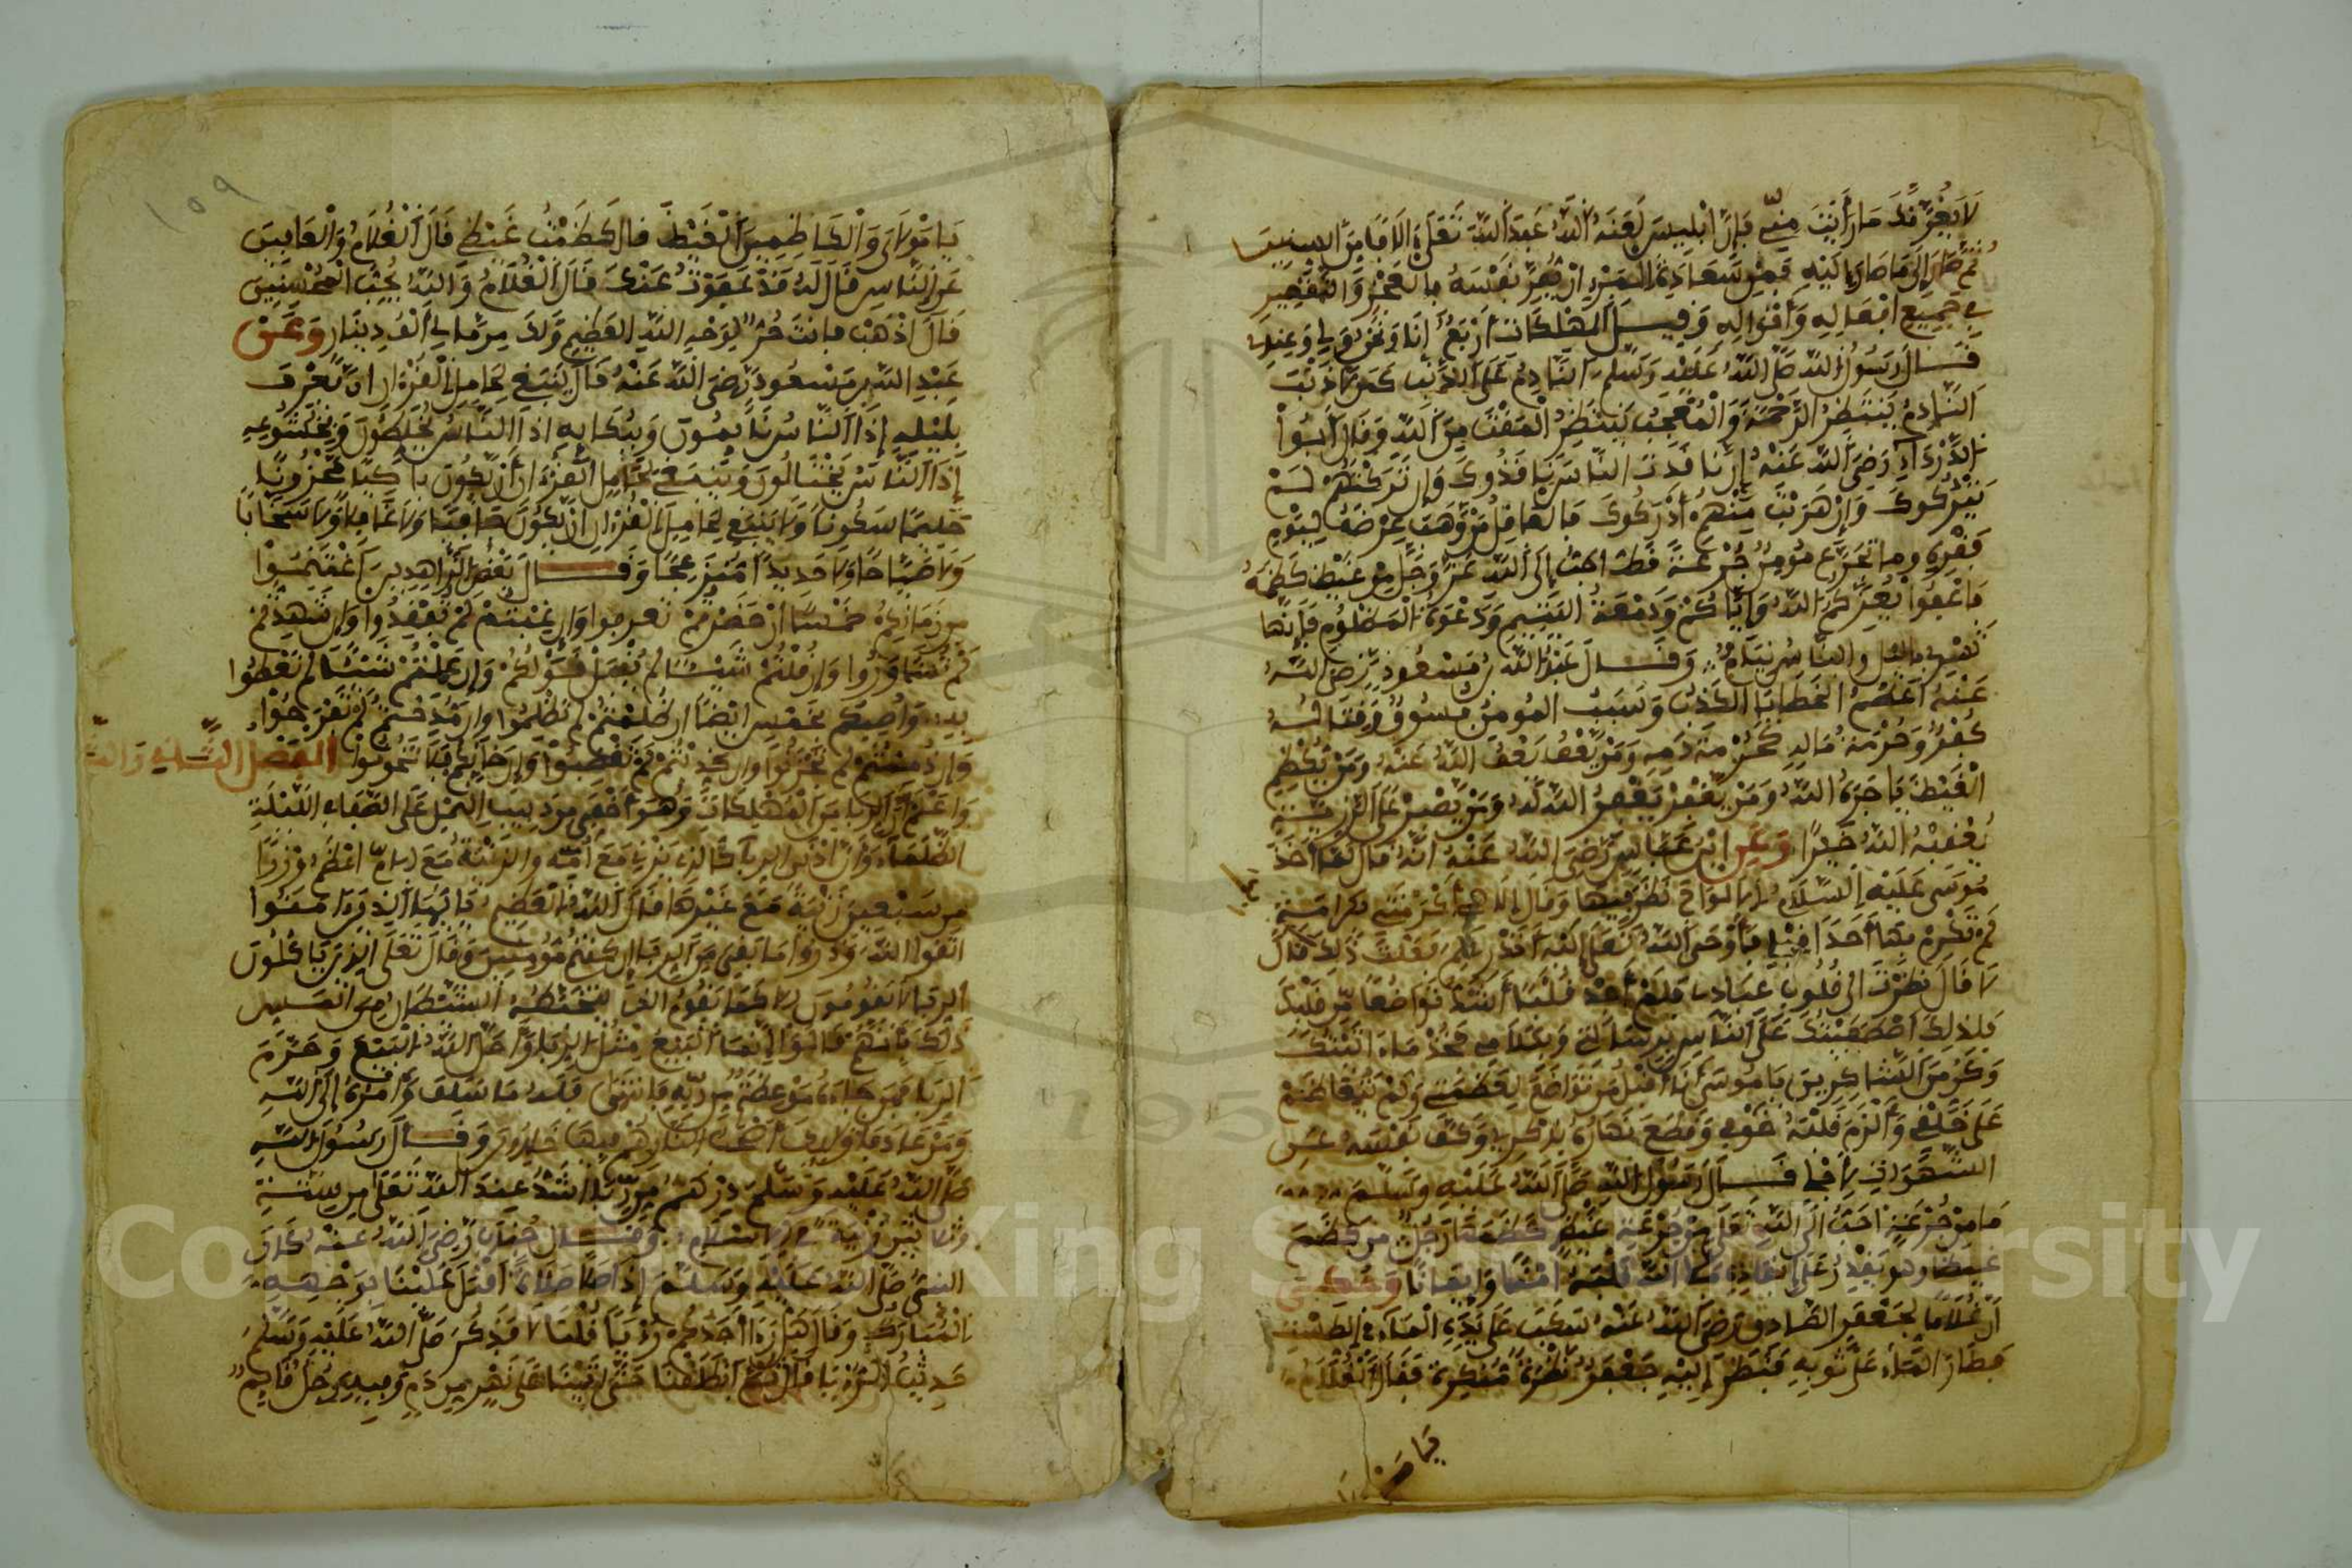 لَا يَغُرَّنَّكَ مَا رَأَيْتَ مِنِّي فَإِنَّ إِبْلِيسَ لَعَنَهُ اللَّهُ عَبَدَ اللَّهَ تَعَلَى ءَالَافًا مِنَ السِّنِينَ
ثُمَّ صَارَ إِلَى مَا صَارَ إِلَيْهِ فَمِنْ سَعَادَةِ الْمَرْءِ أَنْ يُقِرَّ نَفْسَهُ بِالْعَجْزِ وَالتَّقْصِيرِ
فِي جَمِيعِ أَفْعَالِهِ وَأَقْوَالِهِ وَقِيلَ الْمُهْلِكَاتُ أَرْبَعٌ أَنَا وَنَحْنُ وَلِي وَعِنْدِي
قَالَ رَسُولُ اللَّهِ صَلَّى اللَّهُ عَلَيْهِ وَسَلَّمَ النَّادِمُ عَلَى الذَّنْبِ كَمَنْ لَا ذَنْبَ
النَّادِمُ يَنْتَظِرُ الرَّحْمَةَ وَالْمُعْجِبُ يَنْتَظِرُ الْمَقْتَ مِنَ اللَّهِ وَقَالَ أَبُوا
الدَّرْدَاءِ رَضِيَ اللَّهُ عَنْهُ إِنْ نَاقَدْتَ النَّاسَ نَاقَدُوكَ وَإِنْ تَرَكْتَهُمْ لَمْ
يَتْرُكُوكَ وَإِنْ هَرَبْتَ مِنْهُمْ أَدْرَكُوكَ فَالْعَاقِلُ مَنْ وَهَبَ عِرْضَهُ لِيَوْمِ
فَقْرِهِ وَمَا تَجَرَّعَ مُؤْمِنٌ جُرْعَةً قَطُّ أَحَبَّ إِلَى اللَّهِ عَزَّ وَجَلَّ مِنْ غَيْظٍ كَظَمَهُ
فَاعْفُوا يُعِزُّكُمُ اللَّهُ وَإِيَّاكُمْ وَدَمْعَةَ الْيَتِيمِ وَدَعْوَةَ الْمَظْلُومِ فَإِنَّهَا
تَسْرِي بِاللَّيْلِ وَالنَّاسُ نِيَامٌ وَقَالَ عَبْدُ اللَّهِ بْنُ مَسْعُودٍ رَضِيَ اللَّهُ
عَنْهُ أَعْظَمُ الْخَطَايَا الْكَذِبُ وَسَبَبُ الْمُومِنِ فُسُوقٌ وَقِتَالُهُ
كُفْرٌ وَحُرْمَةُ مَالِهِ كَحُرْمَةِ دَمِهِ وَمَنْ يَعْفُ يَعْفُ اللَّهُ عَنْهُ وَمَنْ يَكْظِمِ
الْغَيْظَ يَاجَرْهُ اللَّهُ وَمَنْ يَغْفِرْ يَغْفِرُ اللَّهُ لَهُ وَمَنْ يَصْبِرْ عَلَى الرَّزِيَّةِ
يُعْقِبْهُ اللَّهُ خَيْرًا وَعَنِ ابْنِ عَبَّاسٍ رَضِيَ اللَّهُ عَنْهُ أَنَّهُ قَالَ لَمَّا أَخَذَ
مُوسَى عَلَيْهِ السَّلَامُ الْأَلْوَاحَ نَظَرَ فِيهَا وَقَالَ إِلَاهِي أَكْرَمْتَنِي بِكَرَامَةٍ
لَمْ تُكْرِمْ بِهَا أَحَدًا قَبْلِي فَأَوْحَى اللَّهُ تَعَلَى إِلَيْهِ أَتَدْرِي لِمَ فَعَلْتُ ذَلِكَ قَالَ
لَا قَالَ نَظَرْتُ إِلَى قُلُوبِ عِبَادِي فَلَمْ أَجِدْ قَلْبًا أَشَدَّ تَوَاضُعًا مِنْ قَلْبِكَ
فَلِذَلِكَ اصْطَفَيْتُكَ عَلَى النَّاسِ بِرِسَالَتِي وَبِكَلَامِي فَخُذْ مَا ءَاتَيْتُكَ
وَكُنْ مِنَ الشَّاكِرِينَ يَا مُوسَى أَنَا أَقْبَلُ مَنْ تَوَاضَعَ لِعَظَمَتِي وَلَمْ يَتَعَاظَمْ
عَلَى خَلْقِي وَأَلْزَمَ قَلْبَهُ خَوْفِي وَقَطَعَ نَهَارَهُ بِذِكْرِي وَكَفَّ نَفْسَهُ عَنِ
الشَّهَوَاتِ لِأَجْلِي قَالَ رَسُولُ اللَّهِ صَلَّى اللَّهُ عَلَيْهِ وَسَلَّمَ
مَا مِنْ جُرْعَةٍ أَحَبُّ إِلَى اللَّهِ تَعَلَى مِنْ جُرْعَةِ غَيْظٍ كَظَمَهَا رَجُلٌ مَنْ كَظَمَ
غَيْظًا وَهُوَ يَقْدِرُ عَلَى إِنْفَاذِهِ مَلَأَ اللَّهُ قَلْبَهُ أَمْنًا وَإِيمَانًا وَحُكِيَ
أَنَّ غُلَامًا لِجَعْفَرٍ الصَّادِقِ رَضِيَ اللَّهُ عَنْهُ سَكَبَ عَلَى يَدِهِ الْمَاءَ فِي الطَّسْتِ
فَطَارَ الْمَاءُ عَلَى ثَوْبِهِ فَنَظَرَ إِلَيْهِ جَعْفَرٌ نَظْرَةً مُنْكِرَةً فَقَالَ الْغُلَامُ
يَا مَوْلَايَ
١٥٩
يَا مَوْلَايَ وَالْكَاظِمِينَ الْغَيْظَ قَالَ كَظَمْتُ غَيْظِي قَالَ الْغُلَامُ وَالْعَافِينَ
عَنِ النَّاسِ قَالَ لَهُ قَدْ عَفَوْتُ عَنْكَ قَالَ الْغُلَامُ وَاللَّهُ يُحِبُّ الْمُحْسِنِينَ
قَالَ اذْهَبْ فَأَنْتَ حُرٌّ لِوَجْهِ اللَّهِ الْعَظِيمِ وَلَكَ مِنْ مَالِي أَلْفُ دِينَارٍ وَعَنْ
عَبْدِ اللَّهِ بْنِ مَسْعُودٍ رَضِيَ اللَّهُ عَنْهُ قَالَ يَنْبَغِي لِحَامِلِ الْقُرْءَانِ أَنْ يُعْرَفَ
بِلَيْلِهِ إِذَا النَّاسُ نَايِمُونَ وَبِبُكَايِهِ إِذَا النَّاسُ يَخْلِطُونَ وَبِخُشُوعِهِ
إِذَا النَّاسُ يَخْتَالُونَ وَيَنْبَغِي لِحَامِلِ الْقُرْءَانِ أَنْ يَكُونَ بَاكِيًا مَحْزُونًا
حَلِيمًا سَكُونًا وَلَا يَنْبَغِي لِحَامِلِ الْقُرْءَانِ أَنْ يَكُونَ جَافِيًا وَلَا غَافِلًا وَلَا سَخَّابًا
وَلَا صَيَّاحًا وَلَا حَدِيدًا مُنْزَعِجًا وَقَالَ بَعْضُ الزَّاهِدِينَ اغْتَنِمُوا
مِنْ زَمَانِكُمْ خَمْسًا إِنْ حَضَرْتُمْ لَمْ تُعْرَفُوا وَإِنْ غِبْتُمْ لَمْ تُفْقَدُوا وَإِنْ شَهِدْتُمْ
لَمْ تُشَاوَرُوا وَإِنْ قُلْتُمْ شَيْئًا لَمْ يُقْبَلْ قَوْلُكُمْ وَإِنْ عَمِلْتُمْ شَيْئًا لَمْ تُعْطَوْا
بِهِ وَأُوصِيكُمْ بِخَمْسٍ أَيْضًا إِنْ ظُلِمْتُمْ لَمْ تَظْلِمُوا وَإِنْ مُدِحْتُمْ لَمْ تَفْرَحُوا
وَإِنْ ذُمِمْتُمْ لَمْ تَحْزَنُوا وَإِنْ كُذِّبْتُمْ لَمْ تَغْضَبُوا وَإِنْ خَانُوكُمْ فَلَا تَخُونُوا الْفَصْلُ الثَّانِي وَالثَّ
وَاعْلَمْ أَنَّ الرِّيَا مِنَ الْمُهْلِكَاتِ وَهُوَ أَخْفَى مِنْ دَبِيبِ النَّمْلِ عَلَى الصَّفَاءِ اللَّيْلَةَ
الظَّلْمَاءَ وَأَنَّ ءَاكِلَ الرِّبَا كَالَّذِي يَزْنِي مَعَ أُمِّهِ وَالزَّنْيَةُ مَعَ الْأُمِّ أَعْظَمُ وِزْرًا
مِنْ سَبْعِينَ زَنْيَةً مَعَ غَيْرِهَا قَالَ اللَّهُ الْعَظِيمُ يَا أَيُّهَا الَّذِينَ ءَامَنُوا
اتَّقُوا اللَّهَ وَذَرُوا مَا بَقِيَ مِنَ الرِّبَا إِنْ كُنْتُمْ مُؤْمِنِينَ وَقَالَ تَعَلَى الَّذِينَ يَاكُلُونَ
الرِّبَا لَا يَقُومُونَ إِلَّا كَمَا يَقُومُ الَّذِي يَتَخَبَّطُهُ الشَّيْطَانُ مِنَ الْمَسِّ
ذَلِكَ بِأَنَّهُمْ قَالُوا إِنَّمَا الْبَيْعُ مِثْلُ الرِّبَا وَأَحَلَّ اللَّهُ الْبَيْعَ وَحَرَّمَ
الرِّبَا فَمَنْ جَاءَهُ مَوْعِظَةٌ مِنْ رَبِّهِ فَانْتَهَى فَلَهُ مَا سَلَفَ وَأَمْرُهُ إِلَى اللَّهِ
وَمَنْ عَادَ فَأُولَئِكَ أَصْحَابُ النَّارِ هُمْ فِيهَا خَالِدُونَ وَقَالَ رَسُولُ اللَّهِ
صَلَّى اللَّهُ عَلَيْهِ وَسَلَّمَ دِرْهَمٌ مِنْ رِبًا أَشَدُّ عِنْدَ اللَّهِ تَعَلَى مِنْ سِتَّةٍ
وَثَلَاثِينَ زَنْيَةً فِي الْإِسْلَامِ وَقَالَ جُنْدُبٌ رَضِيَ اللَّهُ عَنْهُ كَانَ
النَّبِيُّ صَلَّى اللَّهُ عَلَيْهِ وَسَلَّمَ إِذَا صَلَّى صَلَاةً أَقْبَلَ عَلَيْنَا بِوَجْهِهِ
الْمُبَارَكِ وَقَالَ هَلْ رَءَا أَحَدُكُمْ رُؤْيَا قُلْنَا لَا فَذَكَرَ صَلَّى اللَّهُ عَلَيْهِ وَسَلَّمَ
حَدِيثَ الرُّؤْيَا قَالَ انْطَلَقْنَا حَتَّى أَتَيْنَا عَلَى نَهْرٍ مِنْ دَمٍ وَفِيهِ رَجُلٌ قَايِمٌ
King Saud University